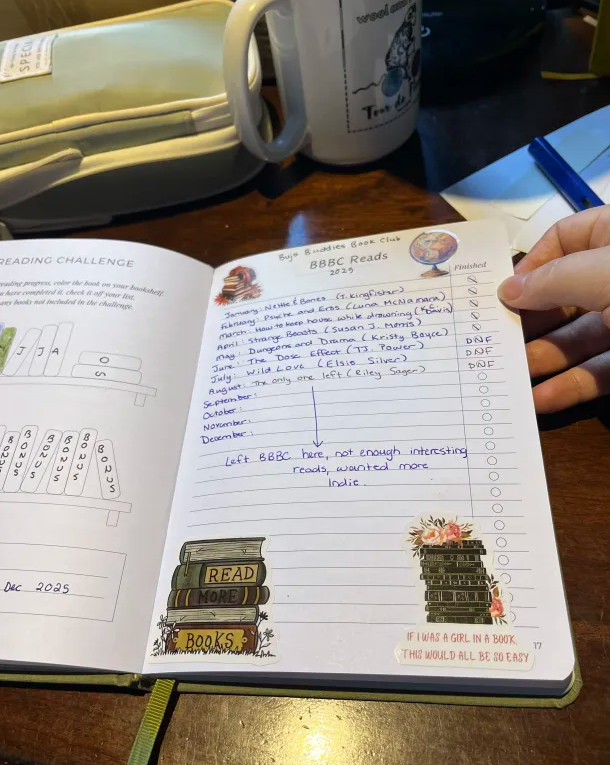 SPECI
wool an
Tour de
READING CHALLENGE
reading progress, color the book on your bookshelf
you have completed it, check it off your list.
any books not included in the challenge.
J J A
O
S
BONUS
BONUS
BONUS
BONUS
BONUS
Dec 2025
Bujo Buddies Book Club
BBBC Reads
2025
Finished
January: Nettle & Bones (T. Kingfisher)
February: Psyche and Eros (Luna McNamara)
March: How to keep house while drowning (KC Davis)
April: Strange Beasts (Susan J. Morris)
May: Dungeons and Drama (Kristy Boyce)
June: The Dose Effect (TJ. Power) DNF
July: Wild Love (Elsie Silver) DNF
August: The only one left (Riley Sager) DNF
September:
October:
November:
December:
Left BBBC here, not enough interesting
reads, wanted more
Indie.
READ
MORE
BOOKS
IF I WAS A GIRL IN A BOOK,
THIS WOULD ALL BE SO EASY
17